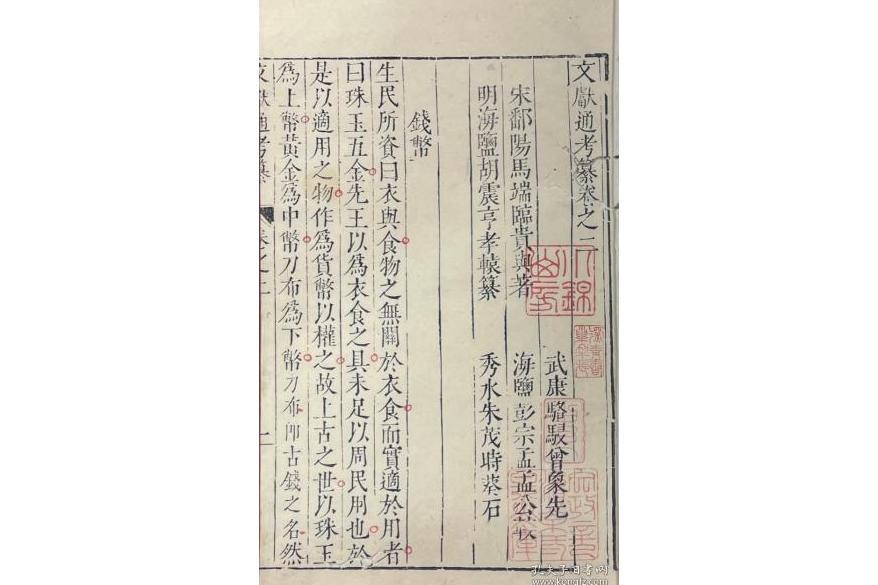 文獻通考纂卷之二
宋鄱陽馬端臨貴與著
武康駱駸曾象先
明海鹽胡震亨孝轅纂
海鹽彭宗孟孟公
秀水朱茂時葵石
錢幣
生民所資曰衣與食物之無關於衣食而實適於用者
曰珠玉五金先王以為衣食之具未足以周民用也於
是以適用之物作為貨幣以權之故上古之世以珠玉
為上幣黃金為中幣刀布為下幣刀布卽古錢之名然
文獻通考纂
卷之二
一